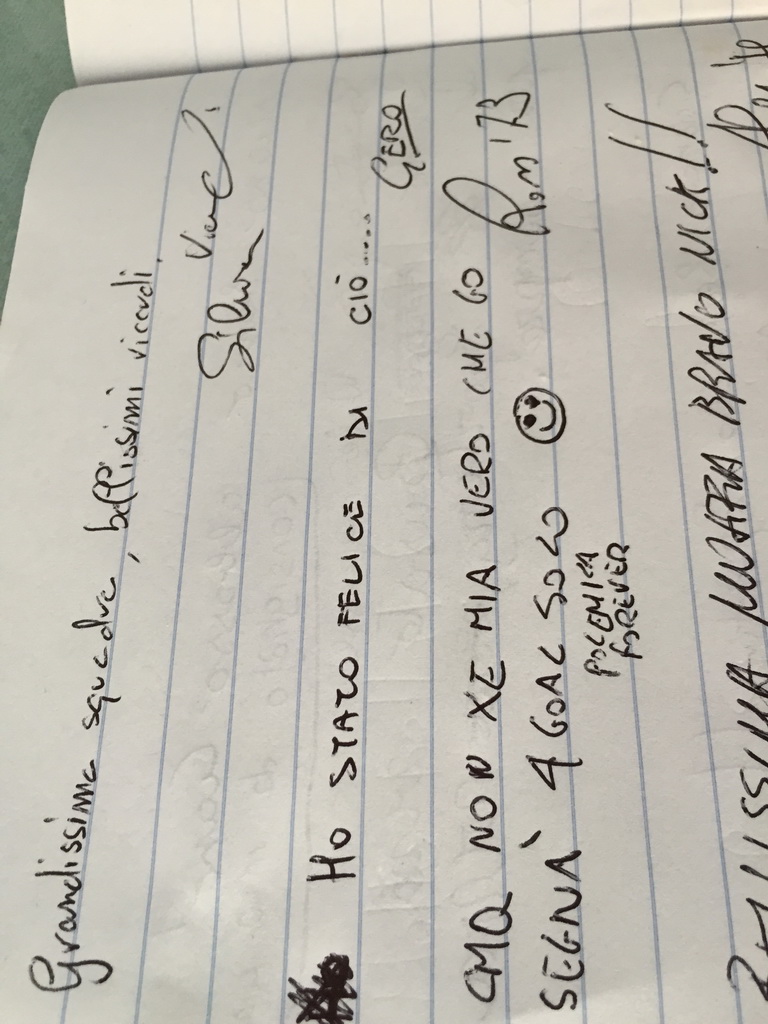 Grandissima squadra, bellissimi ricordi
Silvia
HO STATO FELICE DI CIÒ.....
GERO
CMQ NON XE MIA VERO CHE GO
SEGNÀ 4 GOAL SOLO
Rom '73
POLEMICA
FOREVER
BRAVO NICK!!